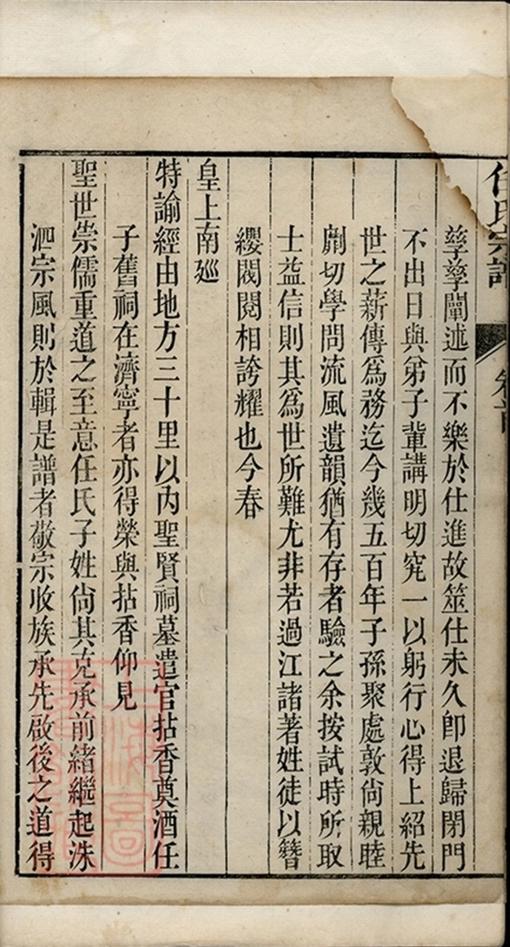 任氏宗譜 卷首
孳孳闡述而不樂於仕進故筮仕未久卽退歸閉門
不出日與弟子輩講明切究一以躬行心得上紹先
世之薪傳爲務迄今幾五百年子孫聚處敦尙親睦
劘切學問流風遺韻猶有存者驗之余按試時所取
士益信則其爲世所難尤非若過江諸著姓徒以簪
纓閥閱相誇耀也今春
皇上南廵
特諭經由地方三十里以內聖賢祠墓遣官拈香奠酒任
子舊祠在濟寧者亦得榮與拈香仰見
聖世崇儒重道之至意任氏子姓尙其克承前緒繼起洙
泗宗風則於輯是譜者敬宗收族承先啟後之道得